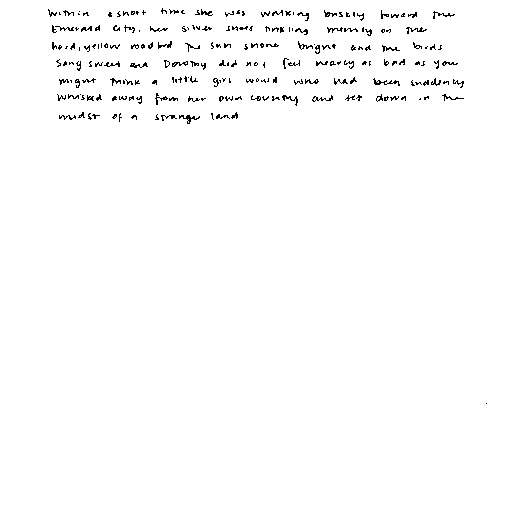 within a short time she was walking briskly toward the
Emerald City, her silver shoes tinkling merrily on the
hard, yellow roadbed The sun shone bright and the birds
sang sweet and Dorothy did not feel nearly as bad as you
might think a little girl would who had been suddenly
whisked away from her own country and set down in the
midst of a strange land